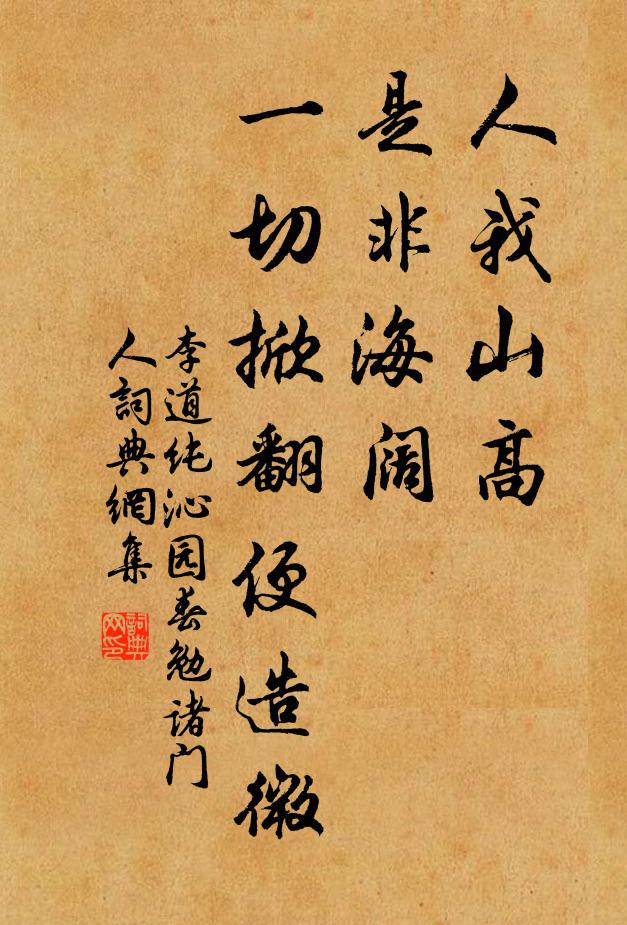 人我山高
是非海阔
一切掀翻便造微
李道纯沁园春勉诸门
人詞典網集
詞典
网印